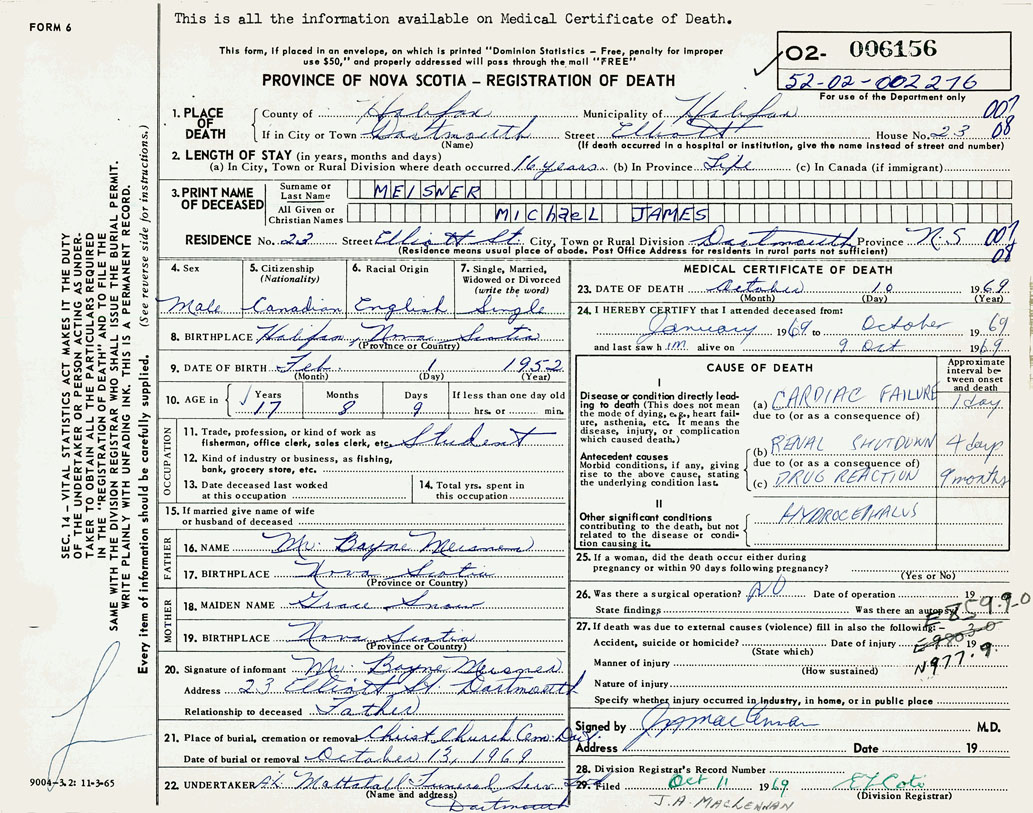 This is all the information available on Medical Certificate of Death.
FORM 6
This form, if placed in an envelope, on which is printed "Dominion Statistics – Free, penalty for improper
use $50," and properly addressed will pass through the mail "FREE"
PROVINCE OF NOVA SCOTIA – REGISTRATION OF DEATH
O2- 006156
52-02-002276
For use of the Department only
1. PLACE OF DEATH
County of Halifax Municipality of Halifax 007
If in City or Town Dartmouth Street Elliott House No. 23 08
(Name) (If death occurred in a hospital or institution, give the name instead of street and number)
2. LENGTH OF STAY (in years, months and days)
(a) In City, Town or Rural Division where death occurred 16 years (b) In Province Life (c) In Canada (if immigrant)
3. PRINT NAME OF DECEASED
Surname or Last Name MEISNER
All Given or Christian Names MICHAEL JAMES
RESIDENCE No. 23 Street Elliott St. City, Town or Rural Division Dartmouth Province N.S 007
(Residence means usual place of abode. Post Office Address for residents in rural parts not sufficient) 08
4. Sex Male
5. Citizenship (Nationality) Canadian
6. Racial Origin English
7. Single, Married, Widowed or Divorced (write the word) Single
8. BIRTHPLACE Halifax, Nova Scotia
(Province or Country)
9. DATE OF BIRTH Feb. 1 1952
(Month) (Day) (Year)
10. AGE in Years Months Days If less than one day old
17 8 9 hrs. or min.
OCCUPATION
11. Trade, profession, or kind of work as
fisherman, office clerk, sales clerk, etc. Student
12. Kind of industry or business, as fishing,
bank, grocery store, etc.
13. Date deceased last worked
at this occupation
14. Total yrs. spent in
this occupation
15. If married give name of wife
or husband of deceased
FATHER
16. NAME Mr. Bayne Meisner
17. BIRTHPLACE Nova Scotia
(Province or Country)
MOTHER
18. MAIDEN NAME Grace Snow
19. BIRTHPLACE Nova Scotia
(Province or Country)
20. Signature of informant Mr. Bayne Meisner
Address 23 Elliott St. Dartmouth
Relationship to deceased Father
21. Place of burial, cremation or removal Christ Church Cem. Dart.
Date of burial or removal October 13, 1969
22. UNDERTAKER Mattatall Funeral Serv
(Name and address) Dartmouth
MEDICAL CERTIFICATE OF DEATH
23. DATE OF DEATH October 10 1969
(Month) (Day) (Year)
24. I HEREBY CERTIFY that I attended deceased from:
January 1969 to October 1969
and last saw him alive on 9 Oct 1969
CAUSE OF DEATH
Approximate interval between onset and death
I
Disease or condition directly leading to death (This does not mean the mode of dying, e.g., heart failure, asthenia, etc. It means the disease, injury, or complication which caused death.)
(a) CARDIAC FAILURE 1 day
due to (or as a consequence of)
Antecedent causes
Morbid conditions, if any, giving rise to the above cause, stating the underlying condition last.
(b) RENAL SHUTDOWN 4 days
due to (or as a consequence of)
(c) DRUG REACTION 9 months
II
Other significant conditions contributing to the death, but not related to the disease or condition causing it.
HYDROCEPHALUS
25. If a woman, did the death occur either during
pregnancy or within 90 days following pregnancy?
(Yes or No)
26. Was there a surgical operation? NO Date of operation 19
State findings Was there an autopsy?
E859.9-0
27. If death was due to external causes (violence) fill in also the following:–
Accident, suicide or homicide? Date of injury 19
(State which)
N977.9
Manner of injury
(How sustained)
Nature of injury
Specify whether injury occurred in industry, in home, or in public place
Signed by M.D.
Address Date 19
28. Division Registrar's Record Number
29. Filed Oct 11 1969
(Division Registrar)
J.A. MACLENNAN
SEC. 14 – VITAL STATISTICS ACT MAKES IT THE DUTY
OF THE UNDERTAKER OR PERSON ACTING AS UNDER-
TAKER TO OBTAIN ALL THE PARTICULARS REQUIRED
IN THE "REGISTRATION OF DEATH" AND TO FILE THE
SAME WITH THE DIVISION REGISTRAR WHO SHALL ISSUE THE BURIAL PERMIT.
WRITE PLAINLY WITH UNFADING INK. THIS IS A PERMANENT RECORD.
Every item of information should be carefully supplied. (See reverse side for instructions.)
9004–3.2: 11-3-65